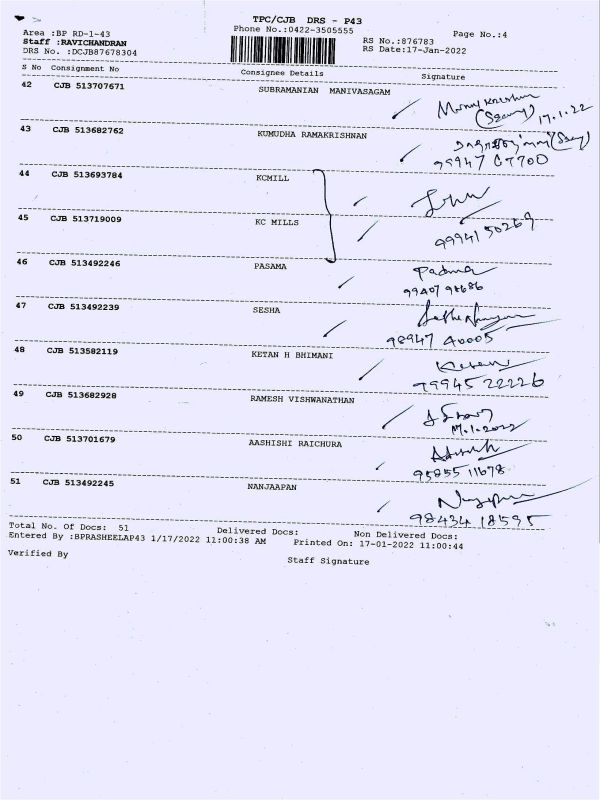 TPC/CJB DRS - P43
Phone No.:0422-3505555
Page No.:4
Area :BP RD-1-43
RS No.:876783
Staff :RAVICHANDRAN
RS Date:17-Jan-2022
DRS No. :DCJB87678304
S No Consignment No Consignee Details Signature
42 CJB 513707671 SUBRAMANIAN MANIVASAGAM
17.1.22
43 CJB 513682762 KUMUDHA RAMAKRISHNAN
44 CJB 513693784 KCMILL
45 CJB 513719009 KC MILLS
99941 50269
46 CJB 513492246 PASAMA Padma
47 CJB 513492239 SESHA
98947 40005
48 CJB 513582119 KETAN H BHIMANI
99945 22226
49 CJB 513682928 RAMESH VISHWANATHAN
17.1.2022
50 CJB 513701679 AASHISHI RAICHURA
95855 11678
51 CJB 513492245 NANJAAPAN
98434 18595
Total No. Of Docs: 51 Delivered Docs: Non Delivered Docs:
Entered By :BPRASHEELAP43 1/17/2022 11:00:38 AM Printed On: 17-01-2022 11:00:44
Verified By Staff Signature